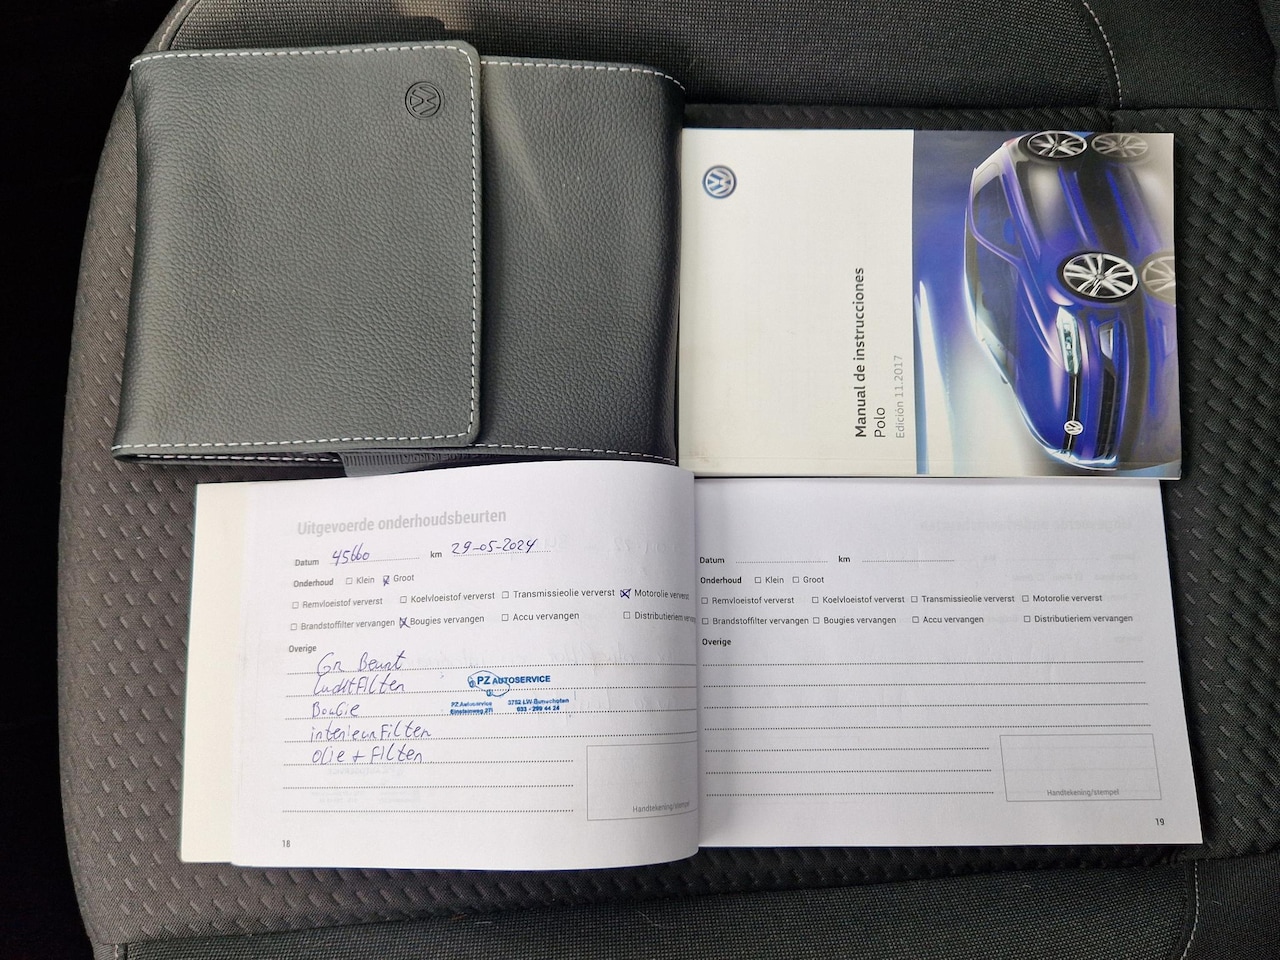 Manual de instrucciones
Polo
Edición 11.2017
Uitgevoerde onderhoudsbeurten
Datum 45660 km 29-05-2024
Onderhoud Klein Groot
Remvloeistof ververst Koelvloeistof ververst Transmissieolie ververst Motorolie ververst
Brandstoffilter vervangen Bougies vervangen Accu vervangen Distributieriem
Overige
Gr Beurt
luchtfilter
Bougie
interieur Filter
olie + Filter
PZ AUTOSERVICE
PZ Autoservice 3752 LW Bunschoten
Einsteinweg 27i 033 - 299 44 24
Handtekening/stempel
18
Datum km
Onderhoud Klein Groot
Remvloeistof ververst Koelvloeistof ververst Transmissieolie ververst Motorolie ververst
Brandstoffilter vervangen Bougies vervangen Accu vervangen Distributieriem vervangen
Overige
Handtekening/stempel
19